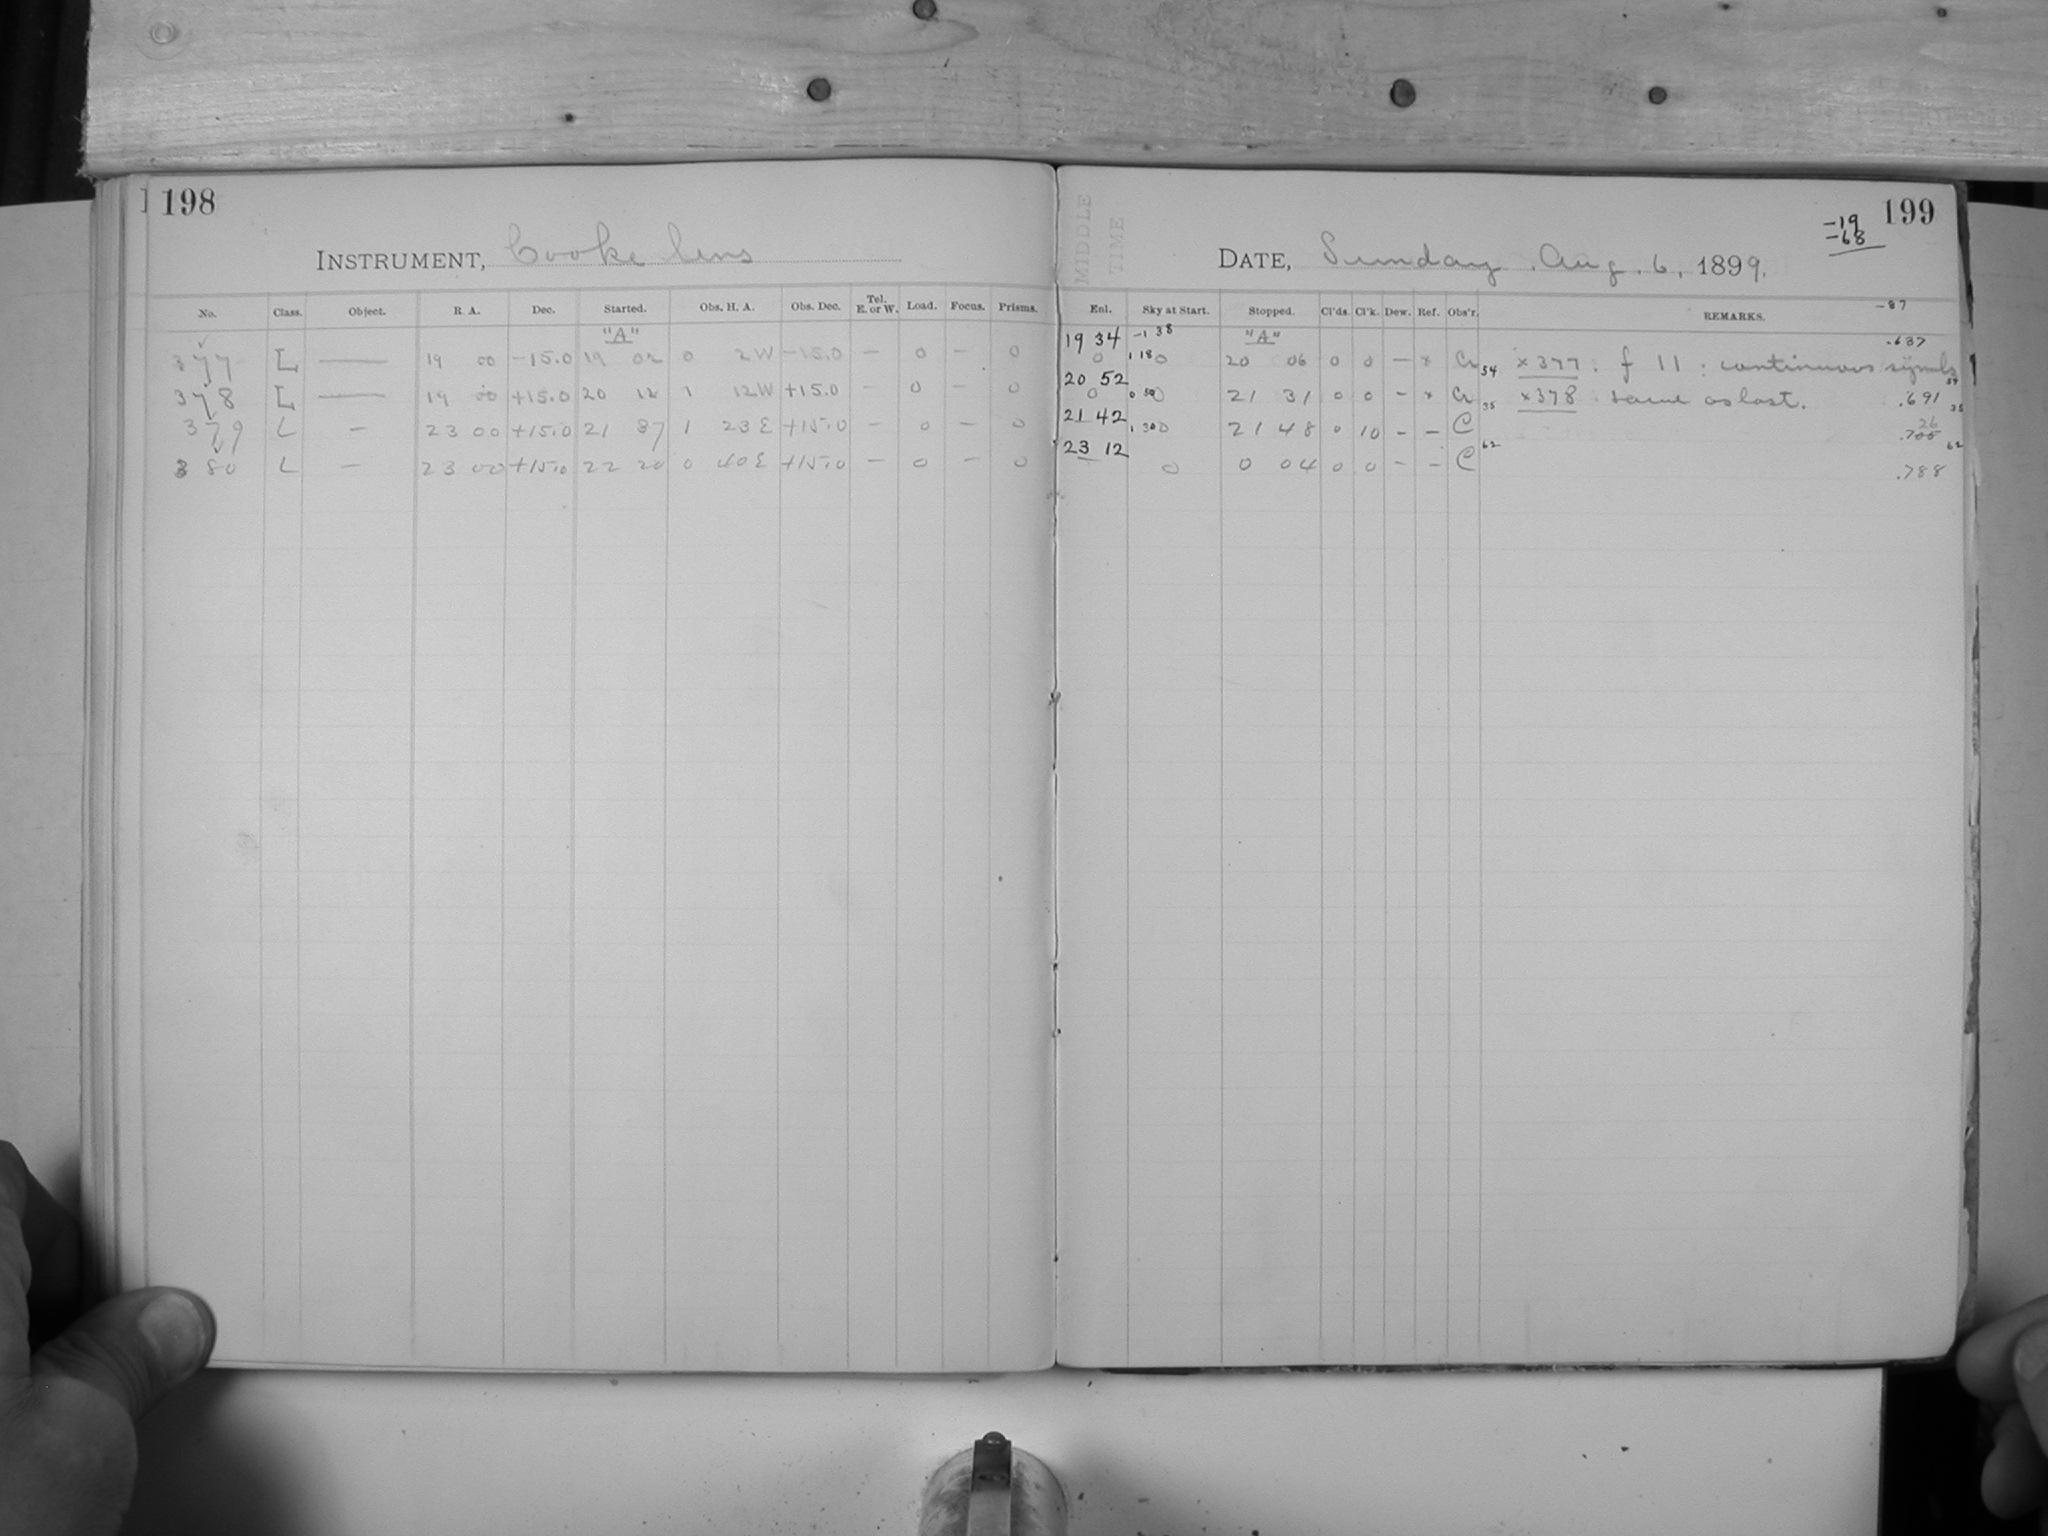 198
INSTRUMENT, Cooke lens
No. Class. Object. R. A. Dec. Started. Obs. H. A. Obs. Dec. Tel. E. or W. Load. Focus. Prisms.
"A"
377 L — 19 00 -15.0 19 02 0 2W -15.0 — 0 — 0
378 L — 19 00 +15.0 20 12 1 12W +15.0 — 0 — 0
379 L — 23 00 +15.0 21 37 1 23E +15.0 — 0 — 0
380 L — 23 00 +15.0 22 20 0 40E +15.0 — 0 — 0
MIDDLE
TIME
199
-19
-68
DATE, Sunday, Aug. 6, 1899.
-87
Enl. Sky at Start. Stopped. Cl'ds. Cl'k. Dew. Ref. Obs'r. REMARKS.
19 34 -1 38 "A" .637
0 1 18 0 20 06 0 0 — * Cr 54 ×377: f 11: continuous symbs 54
20 52
0 0 50 0 21 31 0 0 — * Cr 35 ×378 same as last. .691 35
21 42 26
1 30 0 21 48 0 10 — — C 62 .705 62
23 12
0 0 04 0 0 — — C .788